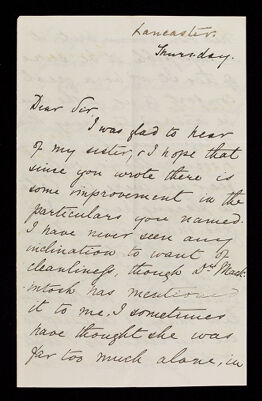 Lancaster.
Thursday.
Dear Sir
I was glad to hear
of my sister, & I hope that
since you wrote there is
some improvement in the
particulars you named.
I have never seen any
inclination to want of
cleanliness, though Dr. Mack-
intosh has mentioned
it to me. I sometimes
have thought she was
far too much alone, in